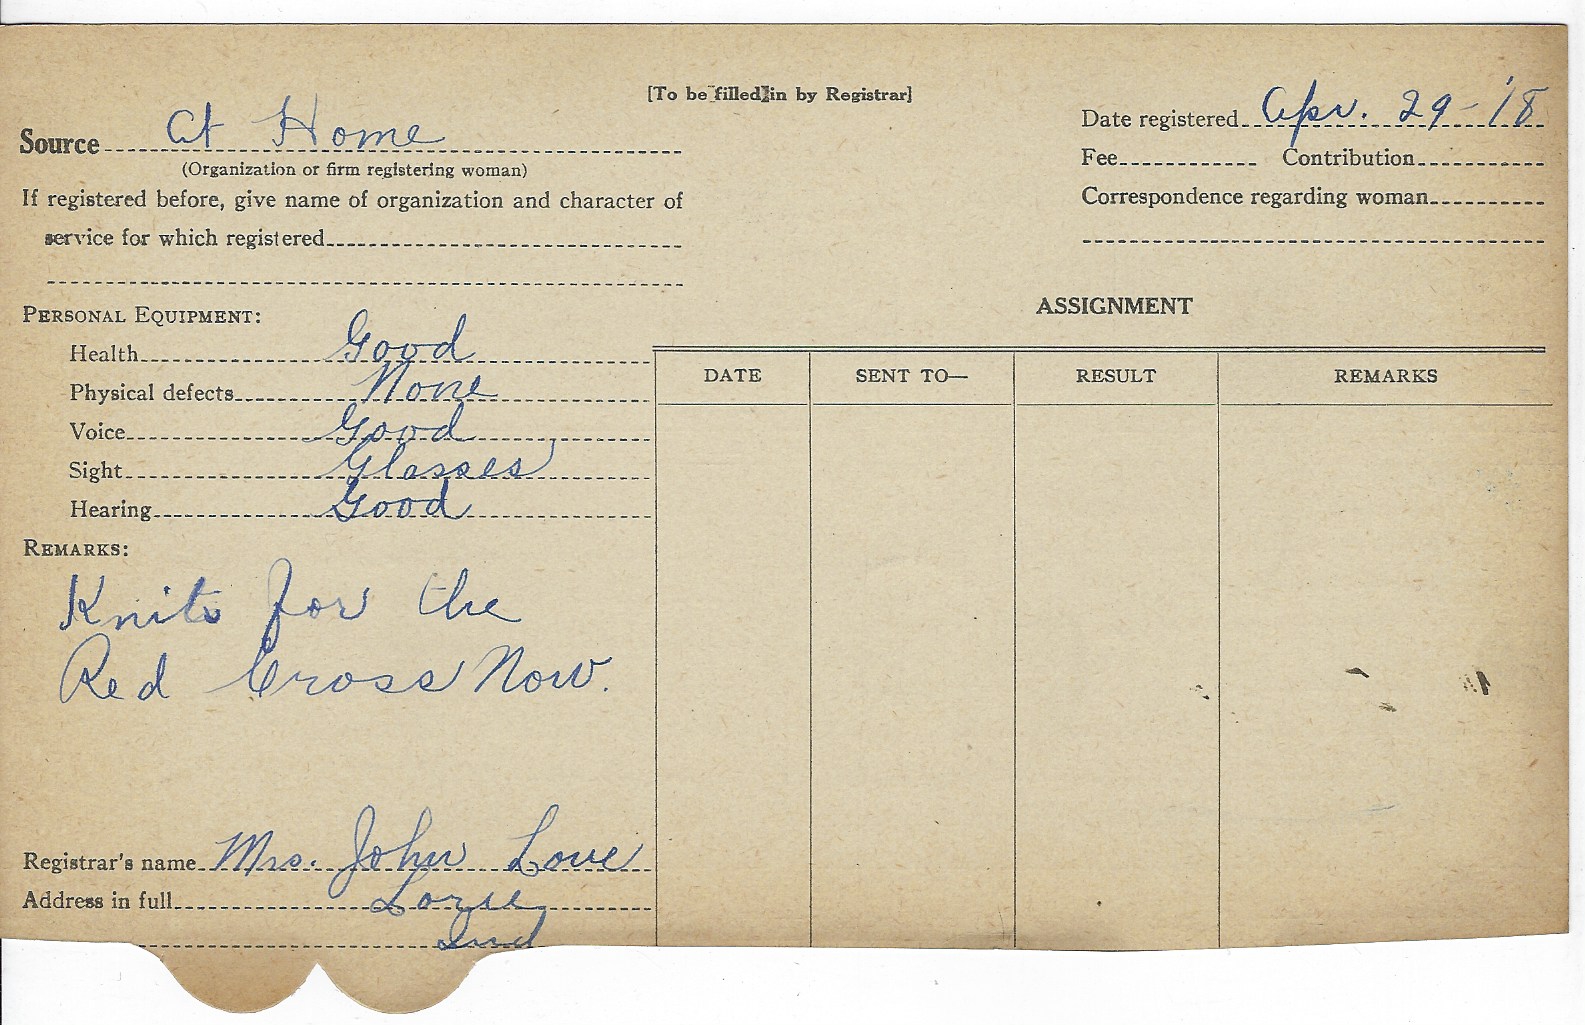 [To be filled in by Registrar]
Source At Home
(Organization or firm registering woman)
If registered before, give name of organization and character of
service for which registered
Date registered Apr. 29-'18
Fee Contribution
Correspondence regarding woman
PERSONAL EQUIPMENT:
Health Good
Physical defects None
Voice Good
Sight Glasses
Hearing Good
REMARKS:
Knits for the
Red Cross Now.
Registrar's name Mrs. John Love
Address in full
Ind
ASSIGNMENT
DATE SENT TO— RESULT REMARKS